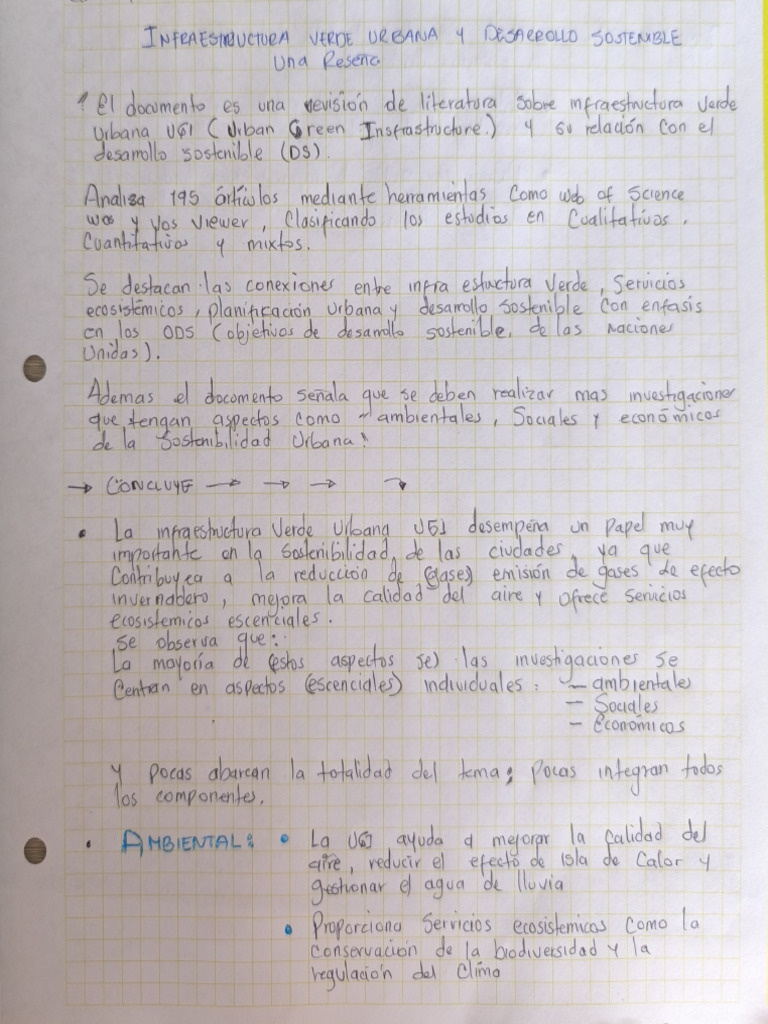 INFRAESTRUCTURA VERDE URBANA Y DESARROLLO SOSTENIBLE
Una Reseña
¹ El documento es una revisión de literatura sobre infraestructura verde
Urbana UGI (Urban Green Insfrastructure.) y su relación con el
desarrollo sostenible (DS).
Analisa 195 ártículos mediante herramientas como web of Science
wos y vos viewer, Clasificando los estudios en Cualitativos,
Cuantitativos y mixtos.
Se destacan las conexiones entre infra estructura Verde, Servicios
ecosistémicos, planificación Urbana y desarrollo sostenible con enfasis
en los ODS (objetivos de desarrollo sostenible, de las naciones
Unidas).
Ademas el documento señala que se deben realizar mas investigaciones
que tengan aspectos como ambientales, Sociales y económicos
de la Sostenibilidad Urbana!
→ CONCLUYE → → → ↴
• La infraestructura Verde Urbana UGI desempeña un papel muy
importante en la sostenibilidad de las ciudades, ya que
Contribuyea a la reducción de (gases) emisión de gases de efecto
invernadero, mejora la calidad del aire y ofrece servicios
ecosistemicos escenciales.
se observa que:
La mayoría de (estos aspectos se) las investigaciones se
Centran en aspectos (escenciales) individuales: — ambientales
— Sociales
— Económicos
Y pocas abarcan la totalidad del tema; pocas integran todos
los componentes.
• AMBIENTAL: • La UGI ayuda a mejorar la calidad del
aire, reducir el efecto de isla de Calor y
gestionar el agua de lluvia
• Proporciona Servicios ecosistemicos como la
conservacion de la biodiversidad y la
regulación del Clima